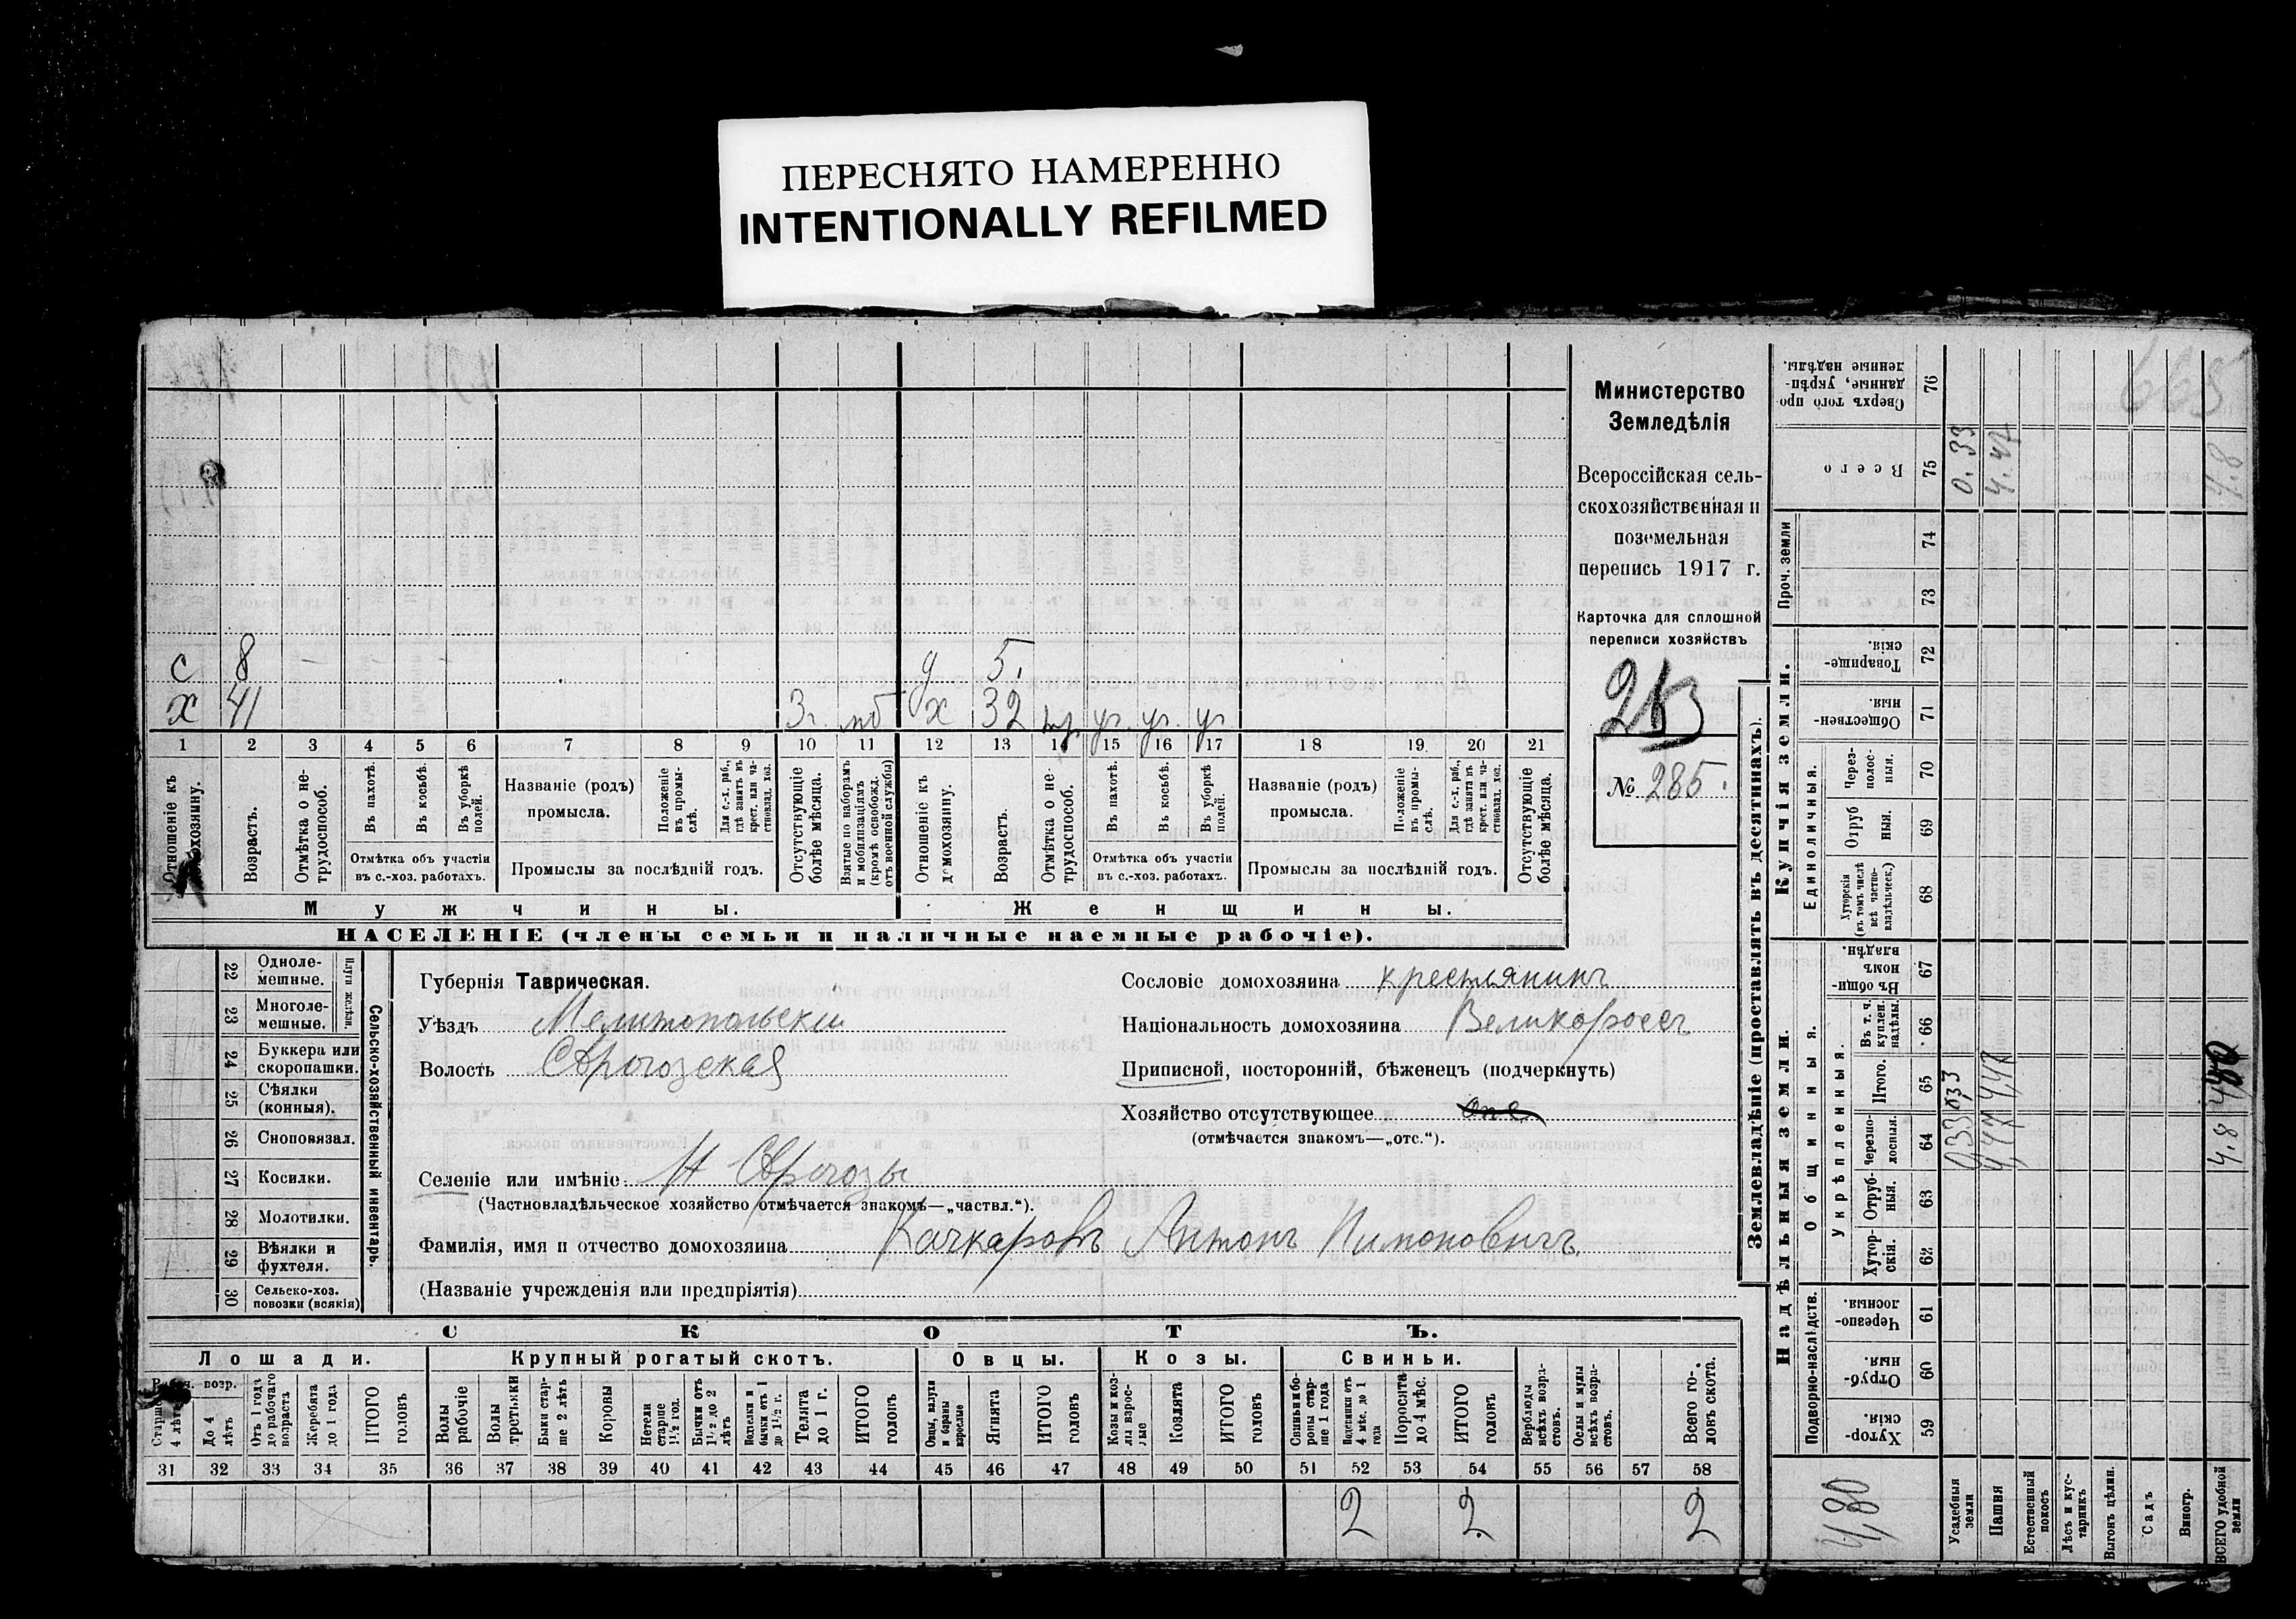 ПЕРЕСНЯТО НАМЕРЕННО
INTENTIONALLY REFILMED
с 8 д 5.
х 41 3г. мб х 32 уч. уч. уч.
1 2 3 4 5 6 7 8 9 10 11 12 13 14 15 16 17 18 19 20 21
Отношеніе къ домохозяину.
Возрастъ.
Отмѣтка о не-
трудоспособ.
Въ пахотѣ.
Въ косьбѣ.
Въ уборкѣ
полей.
Отмѣтка объ участіи
въ с.-хоз. работахъ.
Названіе (родъ)
промысла.
Положеніе
въ промы-
слѣ.
Для с.-х. раб.,
гдѣ занятъ въ
крест. или ча-
стновлад. хоз.
Промыслы за послѣдній годъ.
Отсутствующіе
болѣе мѣсяца.
Взятые по наборамъ
и мобилизаціямъ
(кромѣ освобожд.
отъ военной службы)
Отношеніе къ
домохозяину.
Возрастъ.
Отмѣтка о не-
трудоспособ.
Въ пахотѣ.
Въ косьбѣ.
Въ уборкѣ
полей.
Отмѣтка объ участіи
въ с.-хоз. работахъ.
Названіе (родъ)
промысла.
Положеніе
въ промы-
слѣ.
Для с.-х. раб.,
гдѣ занята въ
крест. или ча-
стновлад. хоз.
Промыслы за послѣдній годъ.
Отсутствующіе
болѣе мѣсяца.
Мужчины.
Женщины.
НАСЕЛЕНІЕ (члены семьи и наличные наемные рабочіе).
Министерство
Земледѣлія
Всероссійская сель-
скохозяйственная и
поземельная
перепись 1917 г.
Карточка для сплошной
переписи хозяйствъ
№ 285.
22 Одноле-
мешные.
23 Многоле-
мешные.
Плуги желѣзн.
24 Буккера или
скоропашки.
25 Сѣялки
(конныя).
26 Сноповязал.
27 Косилки.
28 Молотилки.
29 Вѣялки и
фухтеля.
30 Сельско-хоз.
повозки (всякія)
Сельско-хозяйственный инвентарь.
Губернія Таврическая.
Уѣздъ Мелитопольскій
Волость
Селеніе или имѣніе:
(Частновладѣльческое хозяйство отмѣчается знакомъ—„частвл.“).
Фамилія, имя и отчество домохозяина Качкаровъ Антонъ
(Названіе учрежденія или предпріятія)
Сословіе домохозяина крестьянинъ
Національность домохозяина Великороссъ
Приписной, посторонній, бѣженецъ (подчеркнуть)
Хозяйство отсутствующее
(отмѣчается знакомъ—„отс.“).
СКОТЪ.
Лошади.
Крупный рогатый скотъ.
Овцы.
Козы.
Свиньи.
Рабоч. возр.
Старше
4 лѣтъ
До 4
лѣтъ
Отъ 1 года
до рабочаго
возраста
Жеребята
до 1 года
ИТОГО
головъ
Волы
рабочіе
Волы
третьяки
Быки стар-
ше 2 лѣтъ
Коровы
Нетели
старше
1½ год.
Бычки отъ
1½ до 2
лѣтъ
Подтелки и
бычки отъ 1
до 1½ г.
Телята
до 1 г.
ИТОГО
головъ
Овцы, валухи
и бараны
взрослые
Ягнята
ИТОГО
головъ
Козы и коз-
лы взрос-
лые
Козлята
ИТОГО
головъ
Свиньи и бо-
ровы стар-
ше 1 года
Подсвинки отъ
4 мѣс. до 1
года
Поросята
до 4 мѣс.
ИТОГО
головъ
Верблюды
всѣхъ возра-
стовъ.
Ослы и мулы
всѣхъ возра-
стовъ.
Всего го-
ловъ скота.
31 32 33 34 35 36 37 38 39 40 41 42 43 44 45 46 47 48 49 50 51 52 53 54 55 56 57 58
2 2 2
Землевладѣніе (проставлять въ десятинахъ).
Купчія земли.
Надѣльныя земли.
Проч. земли
Единоличныя.
Общинныя.
Укрѣпленныя.
Подворно-наслѣдств.
Сверхъ того про
данные, укрѣп-
ленные надѣлы.
76
Всего
75
0.33
4.47
4.8
74
73
Товарище-
скія.
72
Обществен-
ныя
71
Через-
полос-
ныя.
70
Отруб
ныя.
69
Хуторскія
(въ томъ числѣ
всѣ частно-
владѣльческ.)
68
Въ общи-
номъ
владѣн.
67
Въ т. ч.
куплен.
надѣлы.
66
Итого.
65
0,33
4,47
4,80
Черезпо-
лосныя.
64
0,33
4,47
4.8
Отруб-
ныя.
63
Хутор-
скія.
62
Черезпо-
лосныя
61
Отруб-
ныя.
60
Хутор-
скія.
59
4,80
Усадебныя
земли
Пашня
Естественный
покосъ
Лѣсъ и кус-
тарникъ
Выгонъ цѣлин.
Садъ
Виногр.
ВСЕГО удобной
земли
668